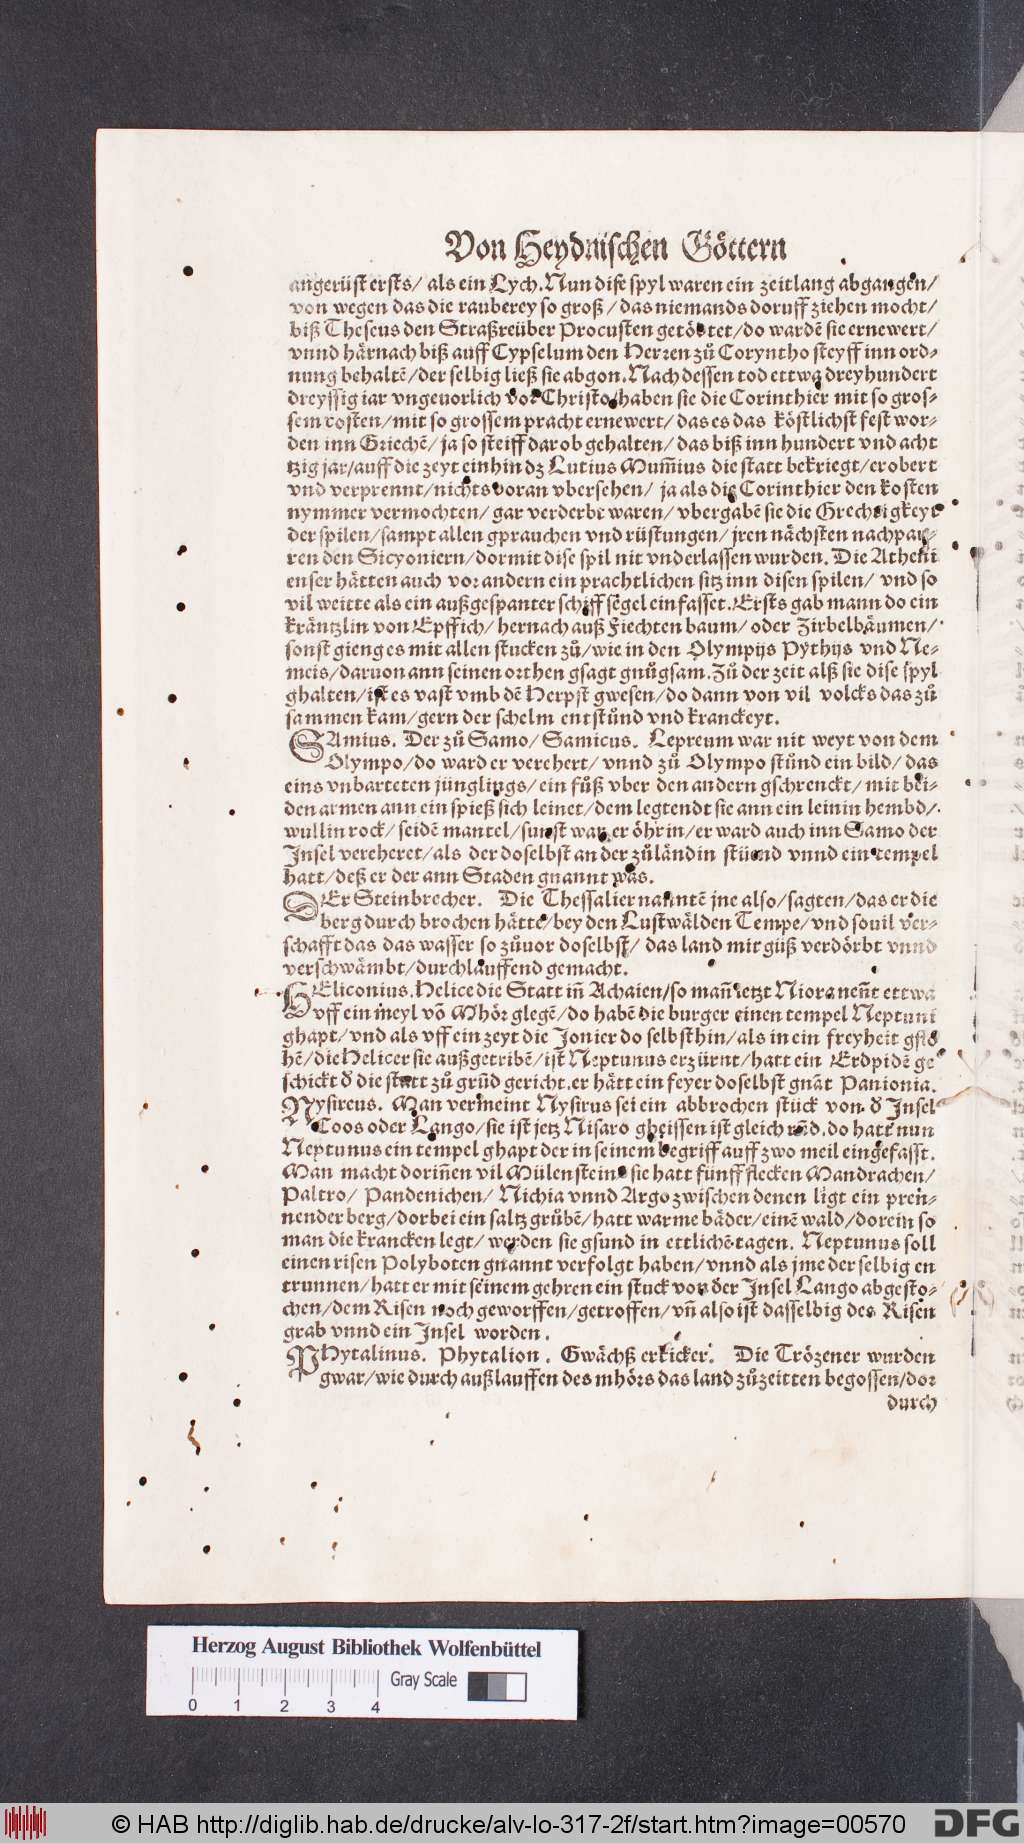 Von Heydnischen Göttern
angerüst ersts/ als ein Lych. Nun dise spyl waren ein zeitlang abgangen/
von wegen das die rauberey so groß/ das niemands doruff ziehen mocht/
biß Theseus den Straßreüber Procusten getöstet/ do wardē sie ernewert/
vnnd härnach biß auff Cypselum den Herren zů Coryntho steyff inn ord-
nung behaltē/ der selbig ließ sie abgon. Nach dessen tod ettwa dreyhundert
dreyssig iar vngeuorlich vor Christo/ haben sie die Corinthier mit so gros-
sem costen/ mit so grossem pracht ernewert/ das es das köstlichst fest wor-
den inn Griechē/ ja so steiff darob gehalten/ das biß inn hundert vnd acht
tzig jar/ auff die zeyt einhin dz Lutius Mum̄ius die statt bekriegt/ erobert
vnd verprennt/ nichts voran vbersehen/ ja als die Corinthier den kosten
nymmer vermochten/ gar verderbt waren/ vbergabē sie die Grechtigkeyt
der spilen/ sampt allen gprauchen vnd rüstungen/ jren nächsten nachpau-
ren den Sicyoniern/ dormit dise spil nit vnderlassen wurden. Die Atheni
enser hätten auch vor andern ein prachtlichen sitz inn disen spilen/ vnd so
vil weitte als ein außgespanter schiff segel einfasset. Ersts gab mann do ein
kräntzlin von Epffich/ hernach auß Fiechten baum/ oder Zirbelbäumen/
sonst gieng es mit allen stucken zů/ wie in den Olympijs Pythijs vnd Ne-
meis/ daruon ann seinen orthen gsagt gnůgsam. Zů der zeit alß sie dise spyl
ghalten/ ist es vast vmb dē Herpst gwesen/ do dann von vil volcks das zů
sammen kam/ gern der schelm entstůnd vnd kranckeyt.
SAmius. Der zů Samo/ Samicus. Lepreum war nit weyt von dem
Olympo/ do ward er verehert/ vnnd zů Olympo stůnd ein bild/ das
eins vnbarteten jünglings/ ein fůß vber den andern gschrenckt/ mit bei-
den armen ann ein spieß sich leinet/ dem legtendt sie ann ein leinin hembd/
wullin rock/ seidē mantel/ sunst war er öhrin/ er ward auch inn Samo der
Insel vereheret/ als der doselbst an der zůländin stůnd vnnd ein tempel
hatt/ deß er der ann Staden gnannt was.
DEr Steinbrecher. Die Thessalier nanntē jne also/ sagten/ das er die
berg durch brochen hätte/ bey den Lustwälden Tempe/ vnd souil ver-
schafft das das wasser so zůuor doselbst/ das land mit güß verdörbt vnnd
verschwämbt/ durchlauffend gemacht.
HEliconius. Helice die Statt in̄ Achaien/ so man̄ ietzt Niora nen̄t ettwa
vff ein meyl vō Mhör glegē/ do habē die burger einen tempel Neptuni
ghapt/ vnd als vff ein zeyt die Jonier do selbsthin/ als in ein freyheit gflo
hē/ die Helicer sie außgetribē/ ist Neptunus erzürnt/ hatt ein Erdpidē ge
schickt d̄ die statt zů grūd gericht. er hätt ein feyer doselbst gnāt Panionia.
NYsireus. Man vermeint Nysirus sei ein abbrochen stück von d̄ Insel
Coos oder Lango/ sie ist jetz Nisaro gheissen ist gleich rūd. do hatt nun
Neptunus ein tempel ghapt der in seinem begriff auff zwo meil eingefasst.
Man macht dorin̄en vil Mülenstein sie hatt fünff flecken Mandrachen/
Paltro/ Pandenichen/ Nichia vnnd Argo zwischen denen ligt ein pren-
nender berg/ dorbei ein saltz grůbē/ hatt warme bäder/ einē wald/ dorein so
man die krancken legt/ werden sie gsund in ettlichē tagen. Neptunus soll
einen risen Polyboten gnannt verfolgt haben/ vnnd als jme der selbig en
trunnen/ hatt er mit seinem gehren ein stuck von der Insel Lango abgesto-
chen/ dem Risen noch geworffen/ getroffen/ vn̄ also ist dasselbig des Risen
grab vnnd ein Insel worden.
PHytalinus. Phytalion. Gwächß erkicker. Die Trözener wurden
gwar/ wie durch außlauffen des mhörs das land zů zeitten begossen/ dor
durch
Herzog August Bibliothek Wolfenbüttel
Gray Scale
0 1 2 3 4
© HAB http://diglib.hab.de/drucke/alv-lo-317-2f/start.htm?image=00570
DFG